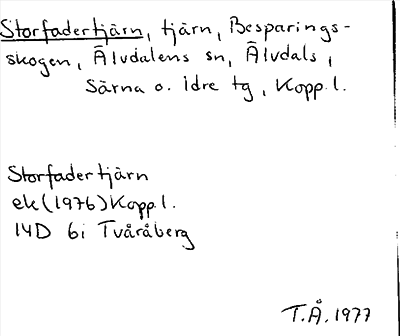 Storfadertjärn, tjärn, Besparings-
skogen, Älvdalens sn, Älvdals,
Särna o. Idre tg, Kopp.l.
Storfadertjärn
ek (1976) Kopp.l.
14D 6i Tvåråberg
T.Å. 1977